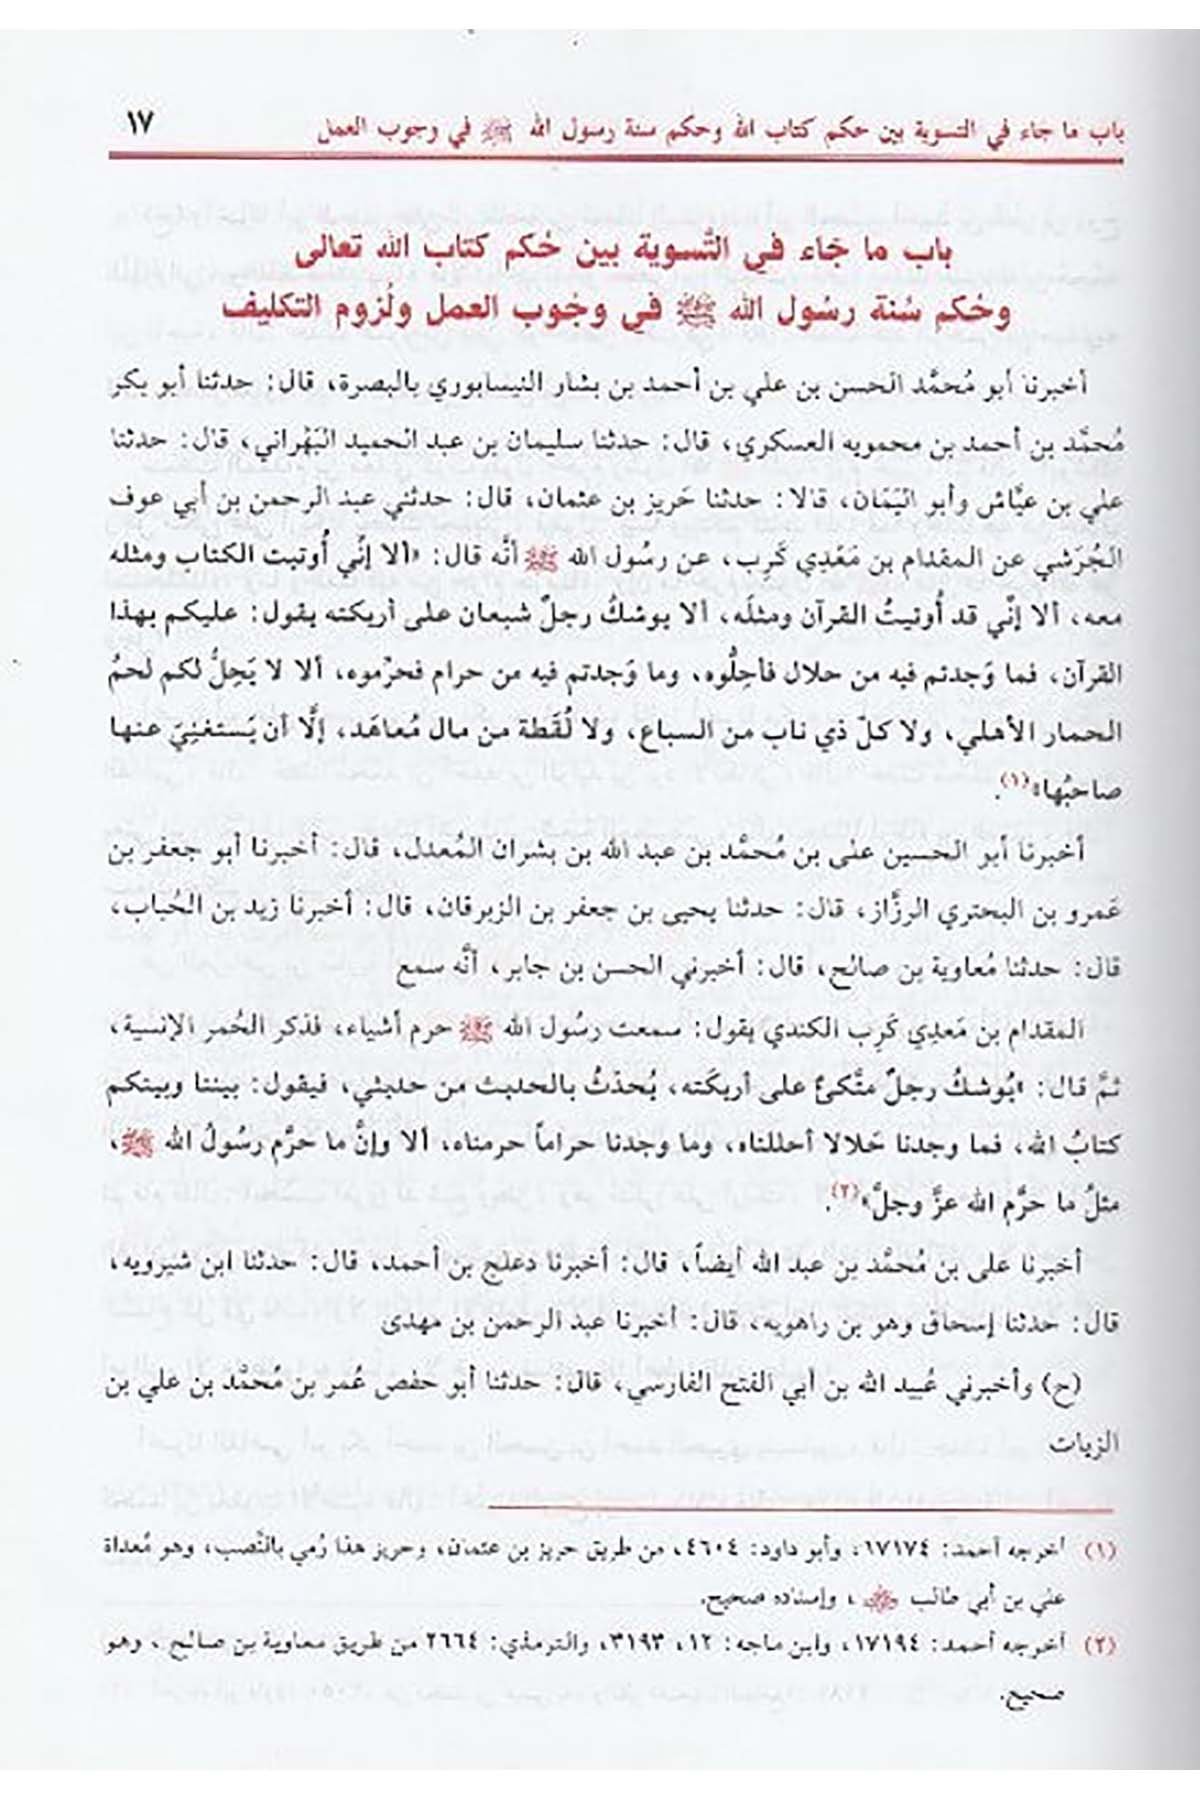 باب ما جاء في التسوية بين حكم كتاب الله وحكم سنة رسول الله ﷺ في وجوب العمل ١٧
باب ما جَاء في التَّسوية بين حُكم كتاب الله تعالى
وحُكم سُنة رسُول الله ﷺ في وجُوب العمل ولُزوم التكليف
أخبرنا أبو مُحمَّد الحسن بن علي بن أحمد بن بشار النيسابوري بالبصرة، قال: حدثنا أبو بكر
مُحمَّد بن أحمد بن محمويه العسكري، قال: حدثنا سليمان بن عبد الحميد البَهْراني، قال: حدثنا
علي بن عيَّاش وأبو اليَمَان، قالا: حدثنا حَريز بن عثمان، قال: حدثني عبد الرحمن بن أبي عوف
الجُرَشي عن المقدام بن مَعْدي كَرِب، عن رسُول الله ﷺ أنَّه قال: «ألا إنِّي أُوتيت الكتاب ومثله
معه، ألا إنِّي قد أُوتيتُ القرآن ومثلَه، ألا يوشكُ رجلٌ شبعان على أريكته يقول: عليكم بهذا
القرآن، فما وَجدتم فيه من حلال فأحِلُّوه، وما وَجدتم فيه من حرام فحرِّموه، ألا لا يَحِلُّ لكم لحمُ
الحمار الأهلي، ولا كلّ ذي ناب من السباع، ولا لُقَطة من مال مُعاهَد، إلَّا أن يَستغنِيَ عنها
صاحبُها»(١).
أخبرنا أبو الحسين على بن مُحمَّد بن عبد الله بن بشران المُعدل، قال: أخبرنا أبو جعفر بن
عَمرو بن البحتري الرزَّاز، قال: حدثنا يحيى بن جعفر بن الزبرقان، قال: أخبرنا زيد بن الحُباب،
قال: حدثنا مُعاوية بن صالح، قال: أخبرني الحسن بن جابر، أنَّه سمع
المقدام بن مَعدي كَرِب الكندي يقول: سمعت رسُول الله ﷺ حرم أشياء، فذكر الحُمر الإنسية،
ثمَّ قال: «يُوشكُ رجلٌ متَّكئٌ على أريكَته، يُحدَّثُ بالحديث من حديثي، فيقول: بيننا وبينكم
كتابُ الله، فما وجدنا حَلالا أحللناه، وما وجدنا حراماً حرمناه، ألا وإنَّ ما حرَّم رسُولُ الله ﷺ،
مثلُ ما حرَّم الله عزَّ وجلَّ»(٢).
أخبرنا على بن مُحمَّد بن عبد الله أيضاً، قال: أخبرنا دعلج بن أحمد، قال: حدثنا ابن شيرويه،
قال: حدثنا إسحاق وهو بن راهويه، قال: أخبرنا عبد الرحمن بن مهدى
(ح) وأخبرني عُبيد الله بن أبي الفتح الفارسي، قال: حدثنا أبو حفص عُمر بن مُحمَّد بن علي بن
الزيات
(١) أخرجه أحمد: ١٧١٧٤، وأبو داود: ٤٦٠٤، من طريق حريز بن عثمان، وحريز هذا رُمي بالنَّصب، وهو مُعاداة
علي بن أبي طالب ﵁، وإسناده صحيح.
(٢) أخرجه أحمد: ١٧١٩٤، وابن ماجه: ١٢، ٣١٩٣، والترمذي: ٢٦٦٤ من طريق معاوية بن صالح، وهو
صحيح.